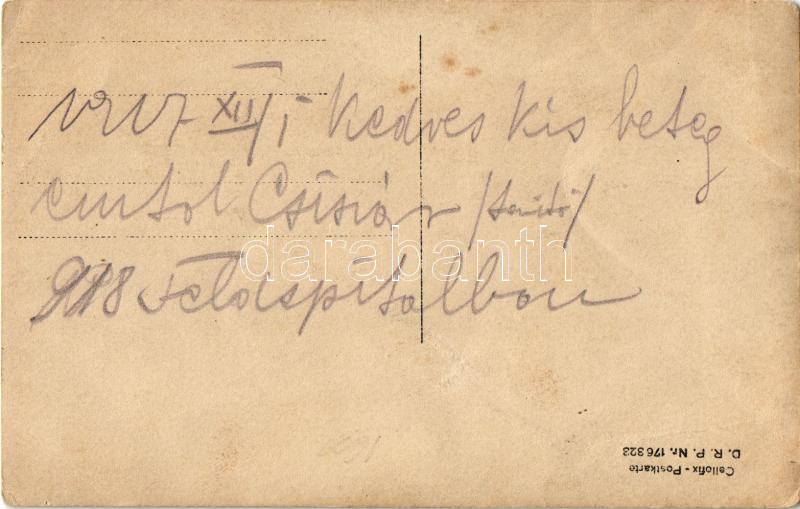 1917 XII/1 Kedves kis beteg
emtol Csiszár /tanító/
918 Feldspitalban
darabanth
Cellofix - Postkarte
D. R. P. Nr. 176 323